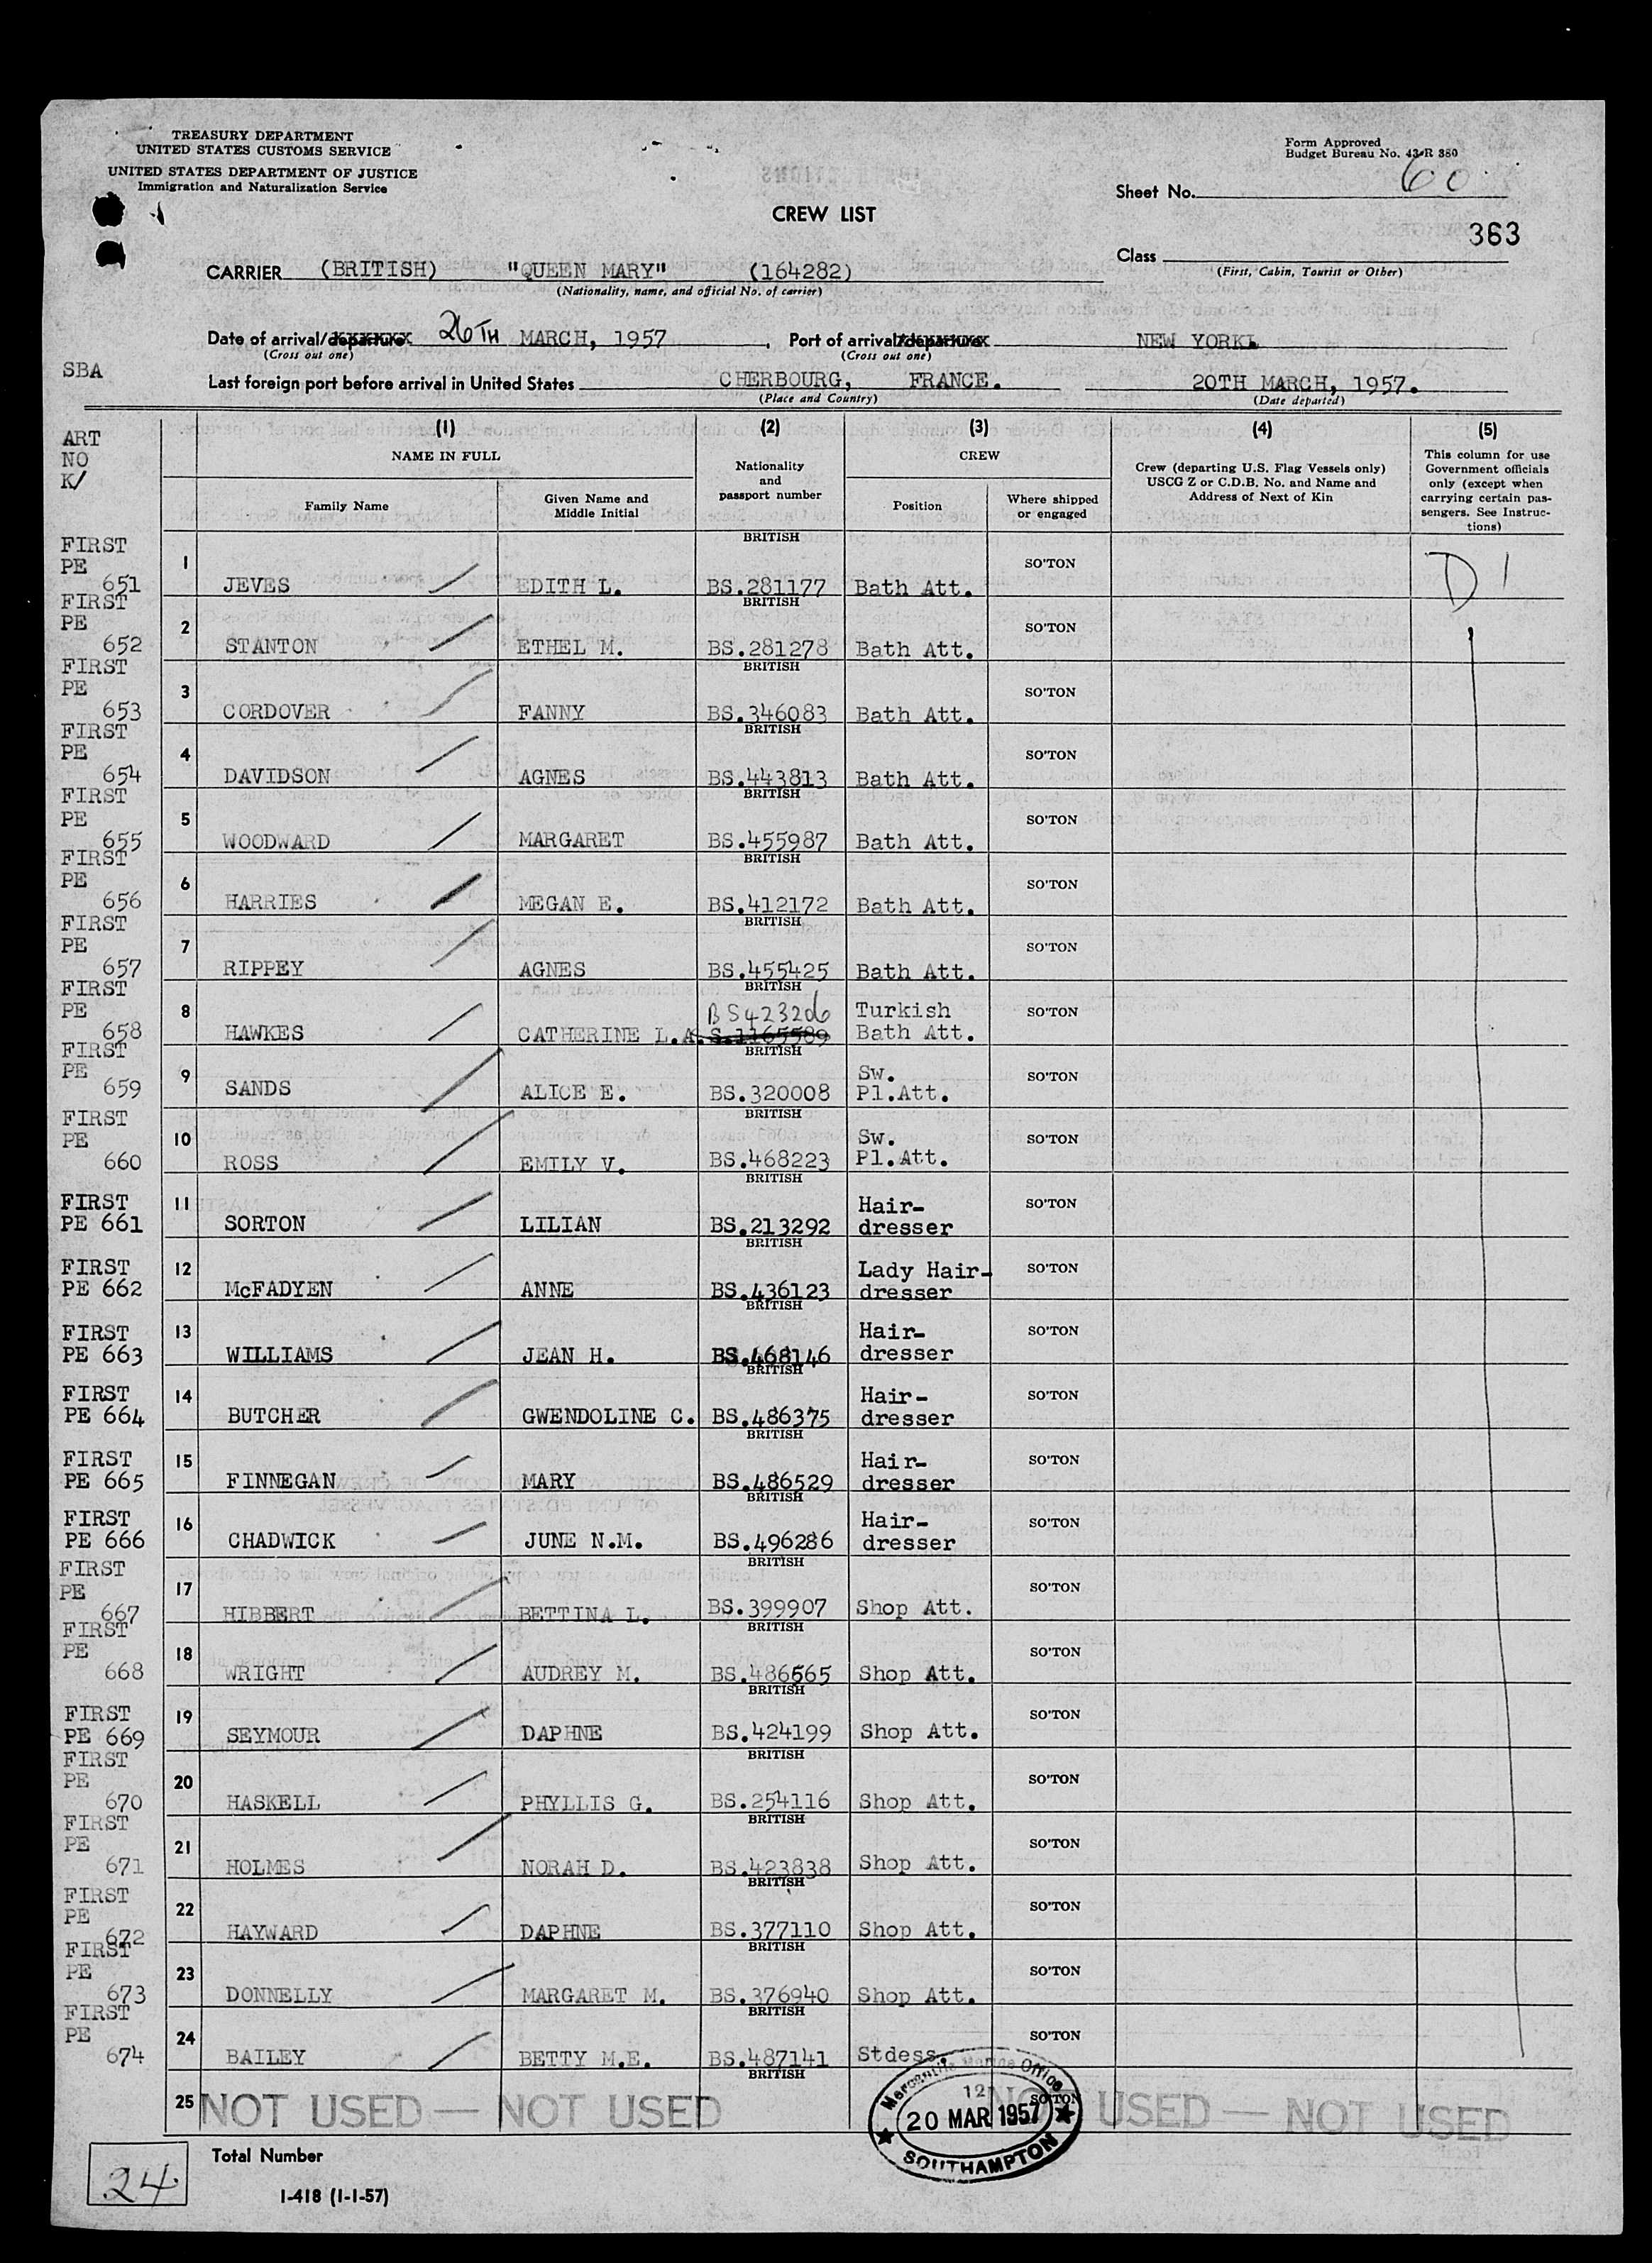 TREASURY DEPARTMENT
UNITED STATES CUSTOMS SERVICE
UNITED STATES DEPARTMENT OF JUSTICE
Immigration and Naturalization Service
Form Approved
Budget Bureau No. 43-R 380
Sheet No. 60
CREW LIST
363
Class
(First, Cabin, Tourist or Other)
CARRIER (BRITISH) "QUEEN MARY" (164282)
(Nationality, name, and official No. of carrier)
Date of arrival/departure 26TH MARCH, 1957. Port of arrival/departure NEW YORK
(Cross out one) (Cross out one)
SBA
Last foreign port before arrival in United States CHERBOURG, FRANCE. 20TH MARCH, 1957.
(Place and Country) (Date departed)
ART
NO
K/
(1) (2) (3) (4) (5)
NAME IN FULL
Family Name
Given Name and
Middle Initial
Nationality
and
passport number
CREW
Position
Where shipped
or engaged
Crew (departing U.S. Flag Vessels only)
USCG Z or C.D.B. No. and Name and
Address of Next of Kin
This column for use
Government officials
only (except when
carrying certain pas-
sengers. See Instruc-
tions)
D1
FIRST PE 651 1 JEVES EDITH L. BRITISH BS.281177 Bath Att. SO'TON
FIRST PE 652 2 STANTON ETHEL M. BRITISH BS.281278 Bath Att. SO'TON
FIRST PE 653 3 CORDOVER FANNY BRITISH BS.346083 Bath Att. SO'TON
FIRST PE 654 4 DAVIDSON AGNES BRITISH BS.443813 Bath Att. SO'TON
FIRST PE 655 5 WOODWARD MARGARET BRITISH BS.455987 Bath Att. SO'TON
FIRST PE 656 6 HARRIES MEGAN E. BRITISH BS.412172 Bath Att. SO'TON
FIRST PE 657 7 RIPPEY AGNES BRITISH BS.455425 Bath Att. SO'TON
FIRST PE 658 8 HAWKES CATHERINE L.A. BRITISH BS423206 S.1165589 Turkish Bath Att. SO'TON
FIRST PE 659 9 SANDS ALICE E. BRITISH BS.320008 Sw. Pl.Att. SO'TON
FIRST PE 660 10 ROSS EMILY V. BRITISH BS.468223 Sw. Pl.Att. SO'TON
FIRST PE 661 11 SORTON LILIAN BRITISH BS.213292 Hair-dresser SO'TON
FIRST PE 662 12 McFADYEN ANNE BRITISH BS.436123 Lady Hair-dresser SO'TON
FIRST PE 663 13 WILLIAMS JEAN H. BRITISH BS.468146 Hair-dresser SO'TON
FIRST PE 664 14 BUTCHER GWENDOLINE C. BRITISH BS.486375 Hair-dresser SO'TON
FIRST PE 665 15 FINNEGAN MARY BRITISH BS.486529 Hair-dresser SO'TON
FIRST PE 666 16 CHADWICK JUNE N.M. BRITISH BS.496286 Hair-dresser SO'TON
FIRST PE 667 17 HIBBERT BETTINA L. BRITISH BS.399907 Shop Att. SO'TON
FIRST PE 668 18 WRIGHT AUDREY M. BRITISH BS.486565 Shop Att. SO'TON
FIRST PE 669 19 SEYMOUR DAPHNE BRITISH BS.424199 Shop Att. SO'TON
FIRST PE 670 20 HASKELL PHYLLIS G. BRITISH BS.254116 Shop Att. SO'TON
FIRST PE 671 21 HOLMES NORAH D. BRITISH BS.423838 Shop Att. SO'TON
FIRST PE 672 22 HAYWARD DAPHNE BRITISH BS.377110 Shop Att. SO'TON
FIRST PE 673 23 DONNELLY MARGARET M. BRITISH BS.376940 Shop Att. SO'TON
FIRST PE 674 24 BAILEY BETTY M.E. BRITISH BS.487141 Stdess. SO'TON
25 NOT USED — NOT USED BRITISH SO'TON NOT USED — NOT USED
Mercantile Marine Office
12
20 MAR 1957
SOUTHAMPTON
24 Total Number
I-418 (1-1-57)